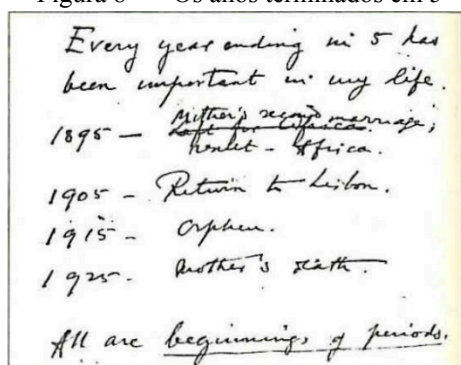 Os anos terminados em 5
Every year ending in 5 has
been important in my life.
1895 — Mother's second marriage;
Left for Africa.
result - Africa.
1905 - Return to Lisbon.
1915 - Orpheu.
1925 - Mother's death.
All are beginnings of periods.